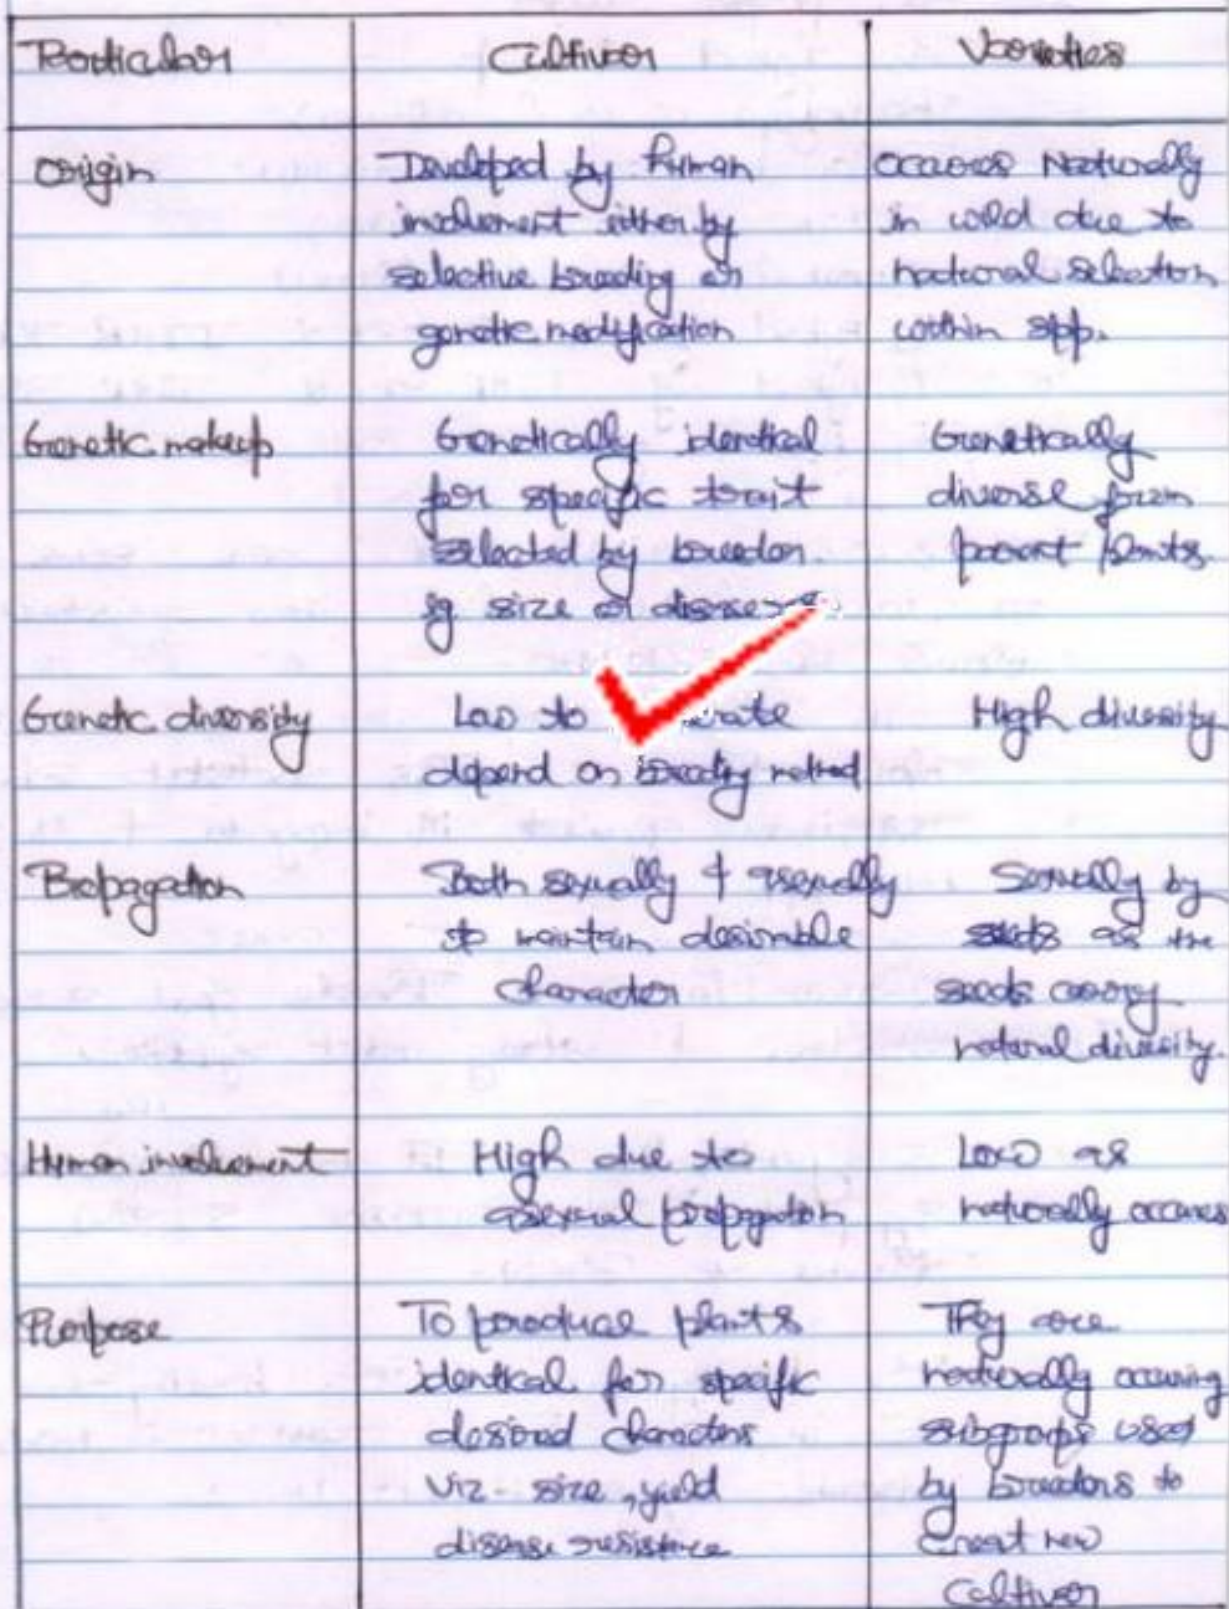 Particular
Cultivar
Varieties
Origin
Developed by human
involvement either by
selective breeding or
genetic modification
occures Naturally
in wild due to
natural selection
within spp.
Genetic makeup
Genetically identical
for specific trait
selected by breeder.
eg size or disease
Genetically
diverse from
parent plants.
Genetic diversity
Low to
depend on breeding method
High diversity
Propagation
Both sexually & asexually
to maintain desirable
character
Sexually by
seeds as the
seeds carry
natural diversity.
Human involvement
High due to
asexual propagation
Low as
naturally occures
Purpose
To produce plants
identical for specific
desired characters
viz- size, yield
disease resistance
They are
naturally occuring
subgroups used
by breeders to
creat new
Cultivar